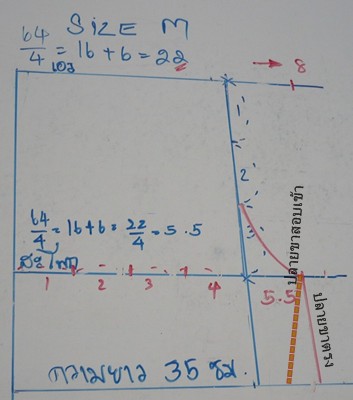 SIZE M
64/4 = 16 + 6 = 22
เอว
→ 8
1
2
3
64/4 = 16+6 = 22/4 = 5.5
สะโพก
1 2 3 4
5.5
ปลายขาสอบเข้า
ปลายขาตรง
ความยาว 35 ซม.